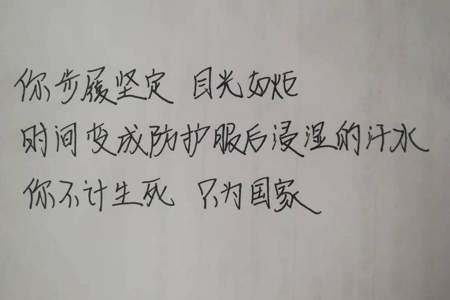 你步履坚定 目光如炬
时间变成防护服后浸湿的汗水
你不计生死 只为国家